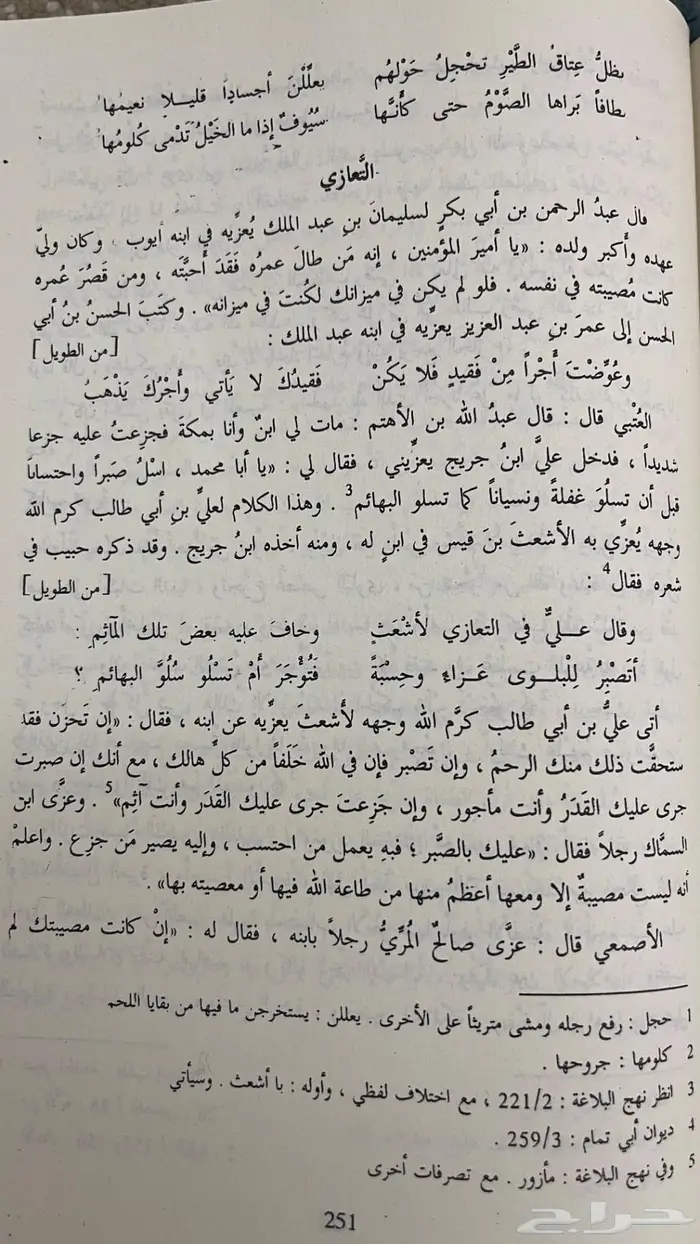 يظلُّ عِتاقُ الطَّيْرِ تحْجِلُ حَوْلهُم يعلِّلْنَ أجساداً قليـلا نعيمُها
لطافاً بَراها الصَّوْمُ حتى كأنَّـها سُيُوفٌ إذا ما الخَيْلُ تَدْمى كُلومُها
التَّعازي
قال عبدُ الرحمن بن أبي بكرٍ لسليمانَ بنِ عبد الملك يُعزِّيه في ابنه أيوب ، وكان وليّ
عهده وأكبر ولده : «يا أميرَ المؤمنين ، إنه مَن طالَ عمرُه فَقَدَ أَحبَّته ، ومن قصُرَ عُمره
كانت مُصيبته في نفسه . فلو لم يكن في ميزانك لكُنتَ في ميزانه» . وكتَبَ الحسنُ بنُ أبي
الحسن إلى عمرَ بنِ عبد العزيز يعزِّيه في ابنه عبد الملك :
[من الطويل]
وعُوِّضْتَ أجْراً مِنْ فَقيدٍ فَلا يَكُنْ فَقيدُكَ لا يَأتي وأَجْرُكَ يَذْهَبُ
العُتْبي قال : قال عبدُ الله بن الأهتم : مات لي ابنٌ وأنا بمكةَ فجزِعتُ عليه جزعا
شديداً ، فدخل عليَّ ابنُ جريج يعزِّيني ، فقال لي : «يا أبا محمد ، اسْلُ صَبراً واحتساباً
قبل أن تسلُوَ غفلةً ونسياناً كما تسلو البهائم3 . وهذا الكلام لعليِّ بنِ أبي طالب كرم الله
وجهه يُعزِّي به الأشعثَ بنَ قيس في ابنٍ له ، ومنه أخذه ابنُ جريج . وقد ذكره حبيب في
شعره فقال4 :
[من الطويل]
وقال علـيٌّ في التعازي لأشْعَثٍ وخافَ عليه بعضَ تلك المآثِمِ :
أتَصْبِرُ لِلْبلـوى عَـزاءً وحِسْبَةً فَتُؤْجَرَ أمْ تَسْلُو سُلُوَّ البهائمِ ؟
أتى عليُّ بن أبي طالب كرَّم الله وجهه لأشعثَ يعزِّيه عن ابنه ، فقال : «إن تَحزَن فقد
ستحقَّت ذلك منك الرحمُ ، وإن تَصْبر فإن في الله خَلَفاً من كلِّ هالك ، مع أنك إن صبرت
جرى عليك القَدَرُ وأنت مأجور ، وإن جَزِعتَ جرى عليك القَدَر وأنت آثِم»5 . وعزَّى ابن
السمَّاك رجلاً فقال : «عليك بالصَّبر ؛ فبهِ يعمل من احتسب ، وإليه يصير مَن جزع . واعلمْ
أنه ليست مصيبةٌ إلا ومعها أعظمُ منها من طاعة الله فيها أو معصيته بها» .
الأصمعي قال : عزَّى صالحٌ المُرِّيُّ رجلاً بابنه ، فقال له : «إنْ كانت مصيبتك لم
1 حجل : رفع رجله ومشى متريثاً على الأخرى . يعللن : يستخرجن ما فيها من بقايا اللحم
2 كلومها : جروحها .
3 انظر نهج البلاغة : 221/2 ، مع اختلاف لفظي ، وأوله : با أشعث . وسيأتي
4 ديوان أبي تمام : 259/3 .
5 وفي نهج البلاغة : مأزور . مع تصرفات أخرى
251
حراج